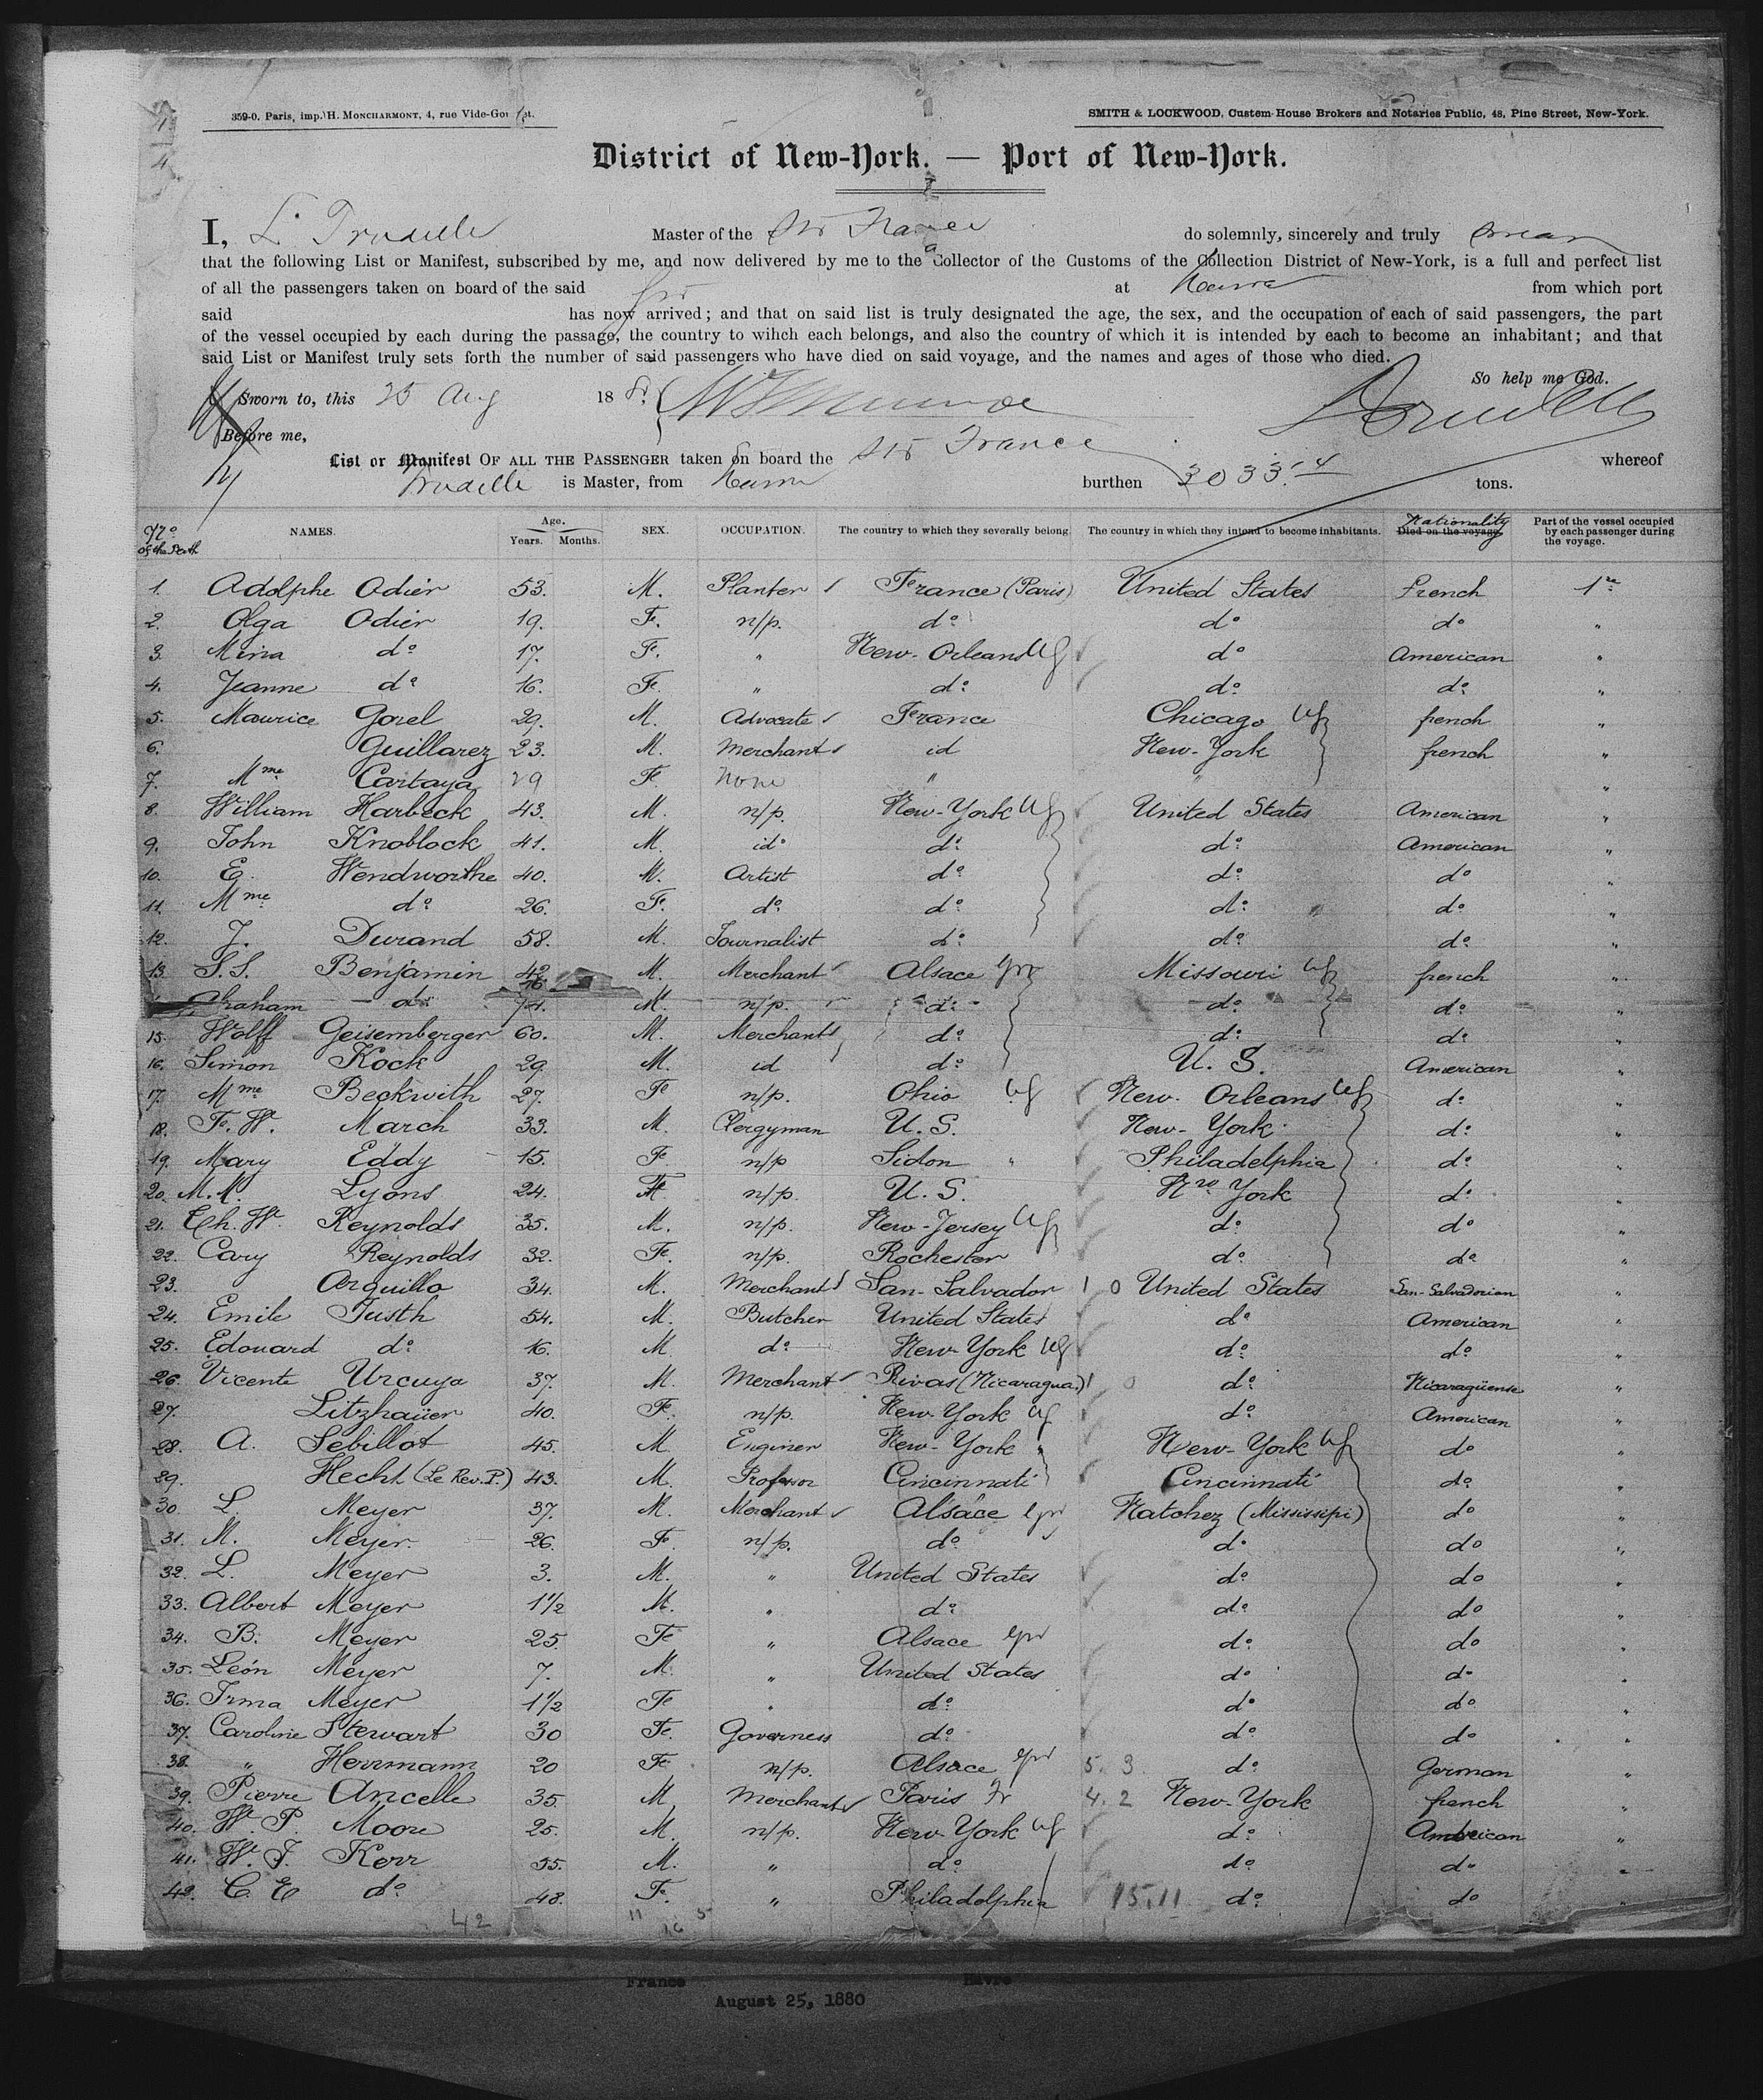 359-0. Paris, imp. H. MONCHARMONT, 4, rue Vide-Gou et.
SMITH & LOCKWOOD, Custom House Brokers and Notaries Public, 48, Pine Street, New-York.
District of New-York. — Port of New-York.
I, L. Trudelle Master of the Str France do solemnly, sincerely and truly swear
that the following List or Manifest, subscribed by me, and now delivered by me to the Collector of the Customs of the Collection District of New-York, is a full and perfect list
of all the passengers taken on board of the said Str at Havre from which port
said has now arrived; and that on said list is truly designated the age, the sex, and the occupation of each of said passengers, the part
of the vessel occupied by each during the passage, the country to wihch each belongs, and also the country of which it is intended by each to become an inhabitant; and that
said List or Manifest truly sets forth the number of said passengers who have died on said voyage, and the names and ages of those who died.
So help me God.
Sworn to, this 25 Aug 188
Before me,
List or Manifest OF ALL THE PASSENGER taken on board the Str France whereof
Trudelle is Master, from Havre burthen 3033.4 tons.
No NAMES. Age. Years. Months. SEX. OCCUPATION. The country to which they severally belong. The country in which they intend to become inhabitants. Died on the voyage Nationality Part of the vessel occupied by each passenger during the voyage.
1. Adolphe Odier 53. M. Planter France (Paris) United States french 1re
2. Olga Odier 19. F. n/p. do do do "
3. Mina do 17. F. " New-Orleans do American "
4. Jeanne do 16. F. " do do do "
5. Maurice Gorel 29. M. Advocate France Chicago french "
6. Guillarez 23. M. Merchant id New-York french "
7. Mme Cartaya 29 F. None " " "
8. William Harbeck 43. M. n/p. New-York United States American "
9. John Knoblock 41. M. ido do do American "
10. E. Wendworthe 40. M. Artist do do do "
11. Mme do 26. F. do do do do "
12. J. Durand 58. M. Journalist do do do "
13. S.S. Benjamin 42. M. Merchant Alsace Missouri french "
Abraham do 74. M. n/p. do do do "
15. Wolff Geisemberger 60. M. Merchant do do do "
16. Simon Kock 29 M. id do U. S. American "
17. Mme Beckwith 27. F n/p. Ohio New-Orleans do "
18. F. W. March 33. M. Clergyman U. S. New-York do "
19. Mary Eddy 15. F n/p Sidon " Philadelphia do "
20. M. Lyons 24. F n/p. U. S. New York do "
21. Ch. W. Reynolds 35. M. n/p. New-Jersey do do "
22. Cary Reynolds 32. F. n/p. Rochester do do "
23. Arguillo 34. M. Merchant San-Salvador 1 0 United States San-Salvadorian "
24. Emile Justh 54. M. Butcher United States do American "
25. Edouard do 16. M. do New-York do do "
26. Vicente Urcuyo 37. M. Merchant Rivas (Nicaragua.) 1 0 do Nicaragüense "
27. Litzhaüer 40. F. n/p. New-York do American "
28. A. Sebillot 45. M. Enginer New-York " New-York do "
29. Hecht (Le Rev. P.) 43. M. Professor Cincinnati Cincinnati do "
30 L. Meyer 37. M. Merchant Alsace Natchez (Mississipi) do "
31. M. Meyer. 26. F. n/p. do do do "
32. L. Meyer 3. M. " United States do do "
33. Albert Meyer 1 1/2 M. " do do do "
34. B. Meyer 25. F " Alsace do do "
35. León Meyer 7. M. " United States do do "
36. Irma Meyer 1 1/2 F " do do do "
37. Caroline Stewart 30 F. Governess do do do "
38. " Herrmann 20 F n/p. Alsace 5. 3 do German "
39. Pierre Ancelle 35. M. Merchant Paris Fr 4. 2 New-York french "
40. W. P. Moore 25. M. n/p. New York do American "
41. W. J. Kerr 55. M. " do do do "
42. C. E do 48. F. " Philadelphia 15.11 do do "
42 11 16 5
France Havre
August 25, 1880